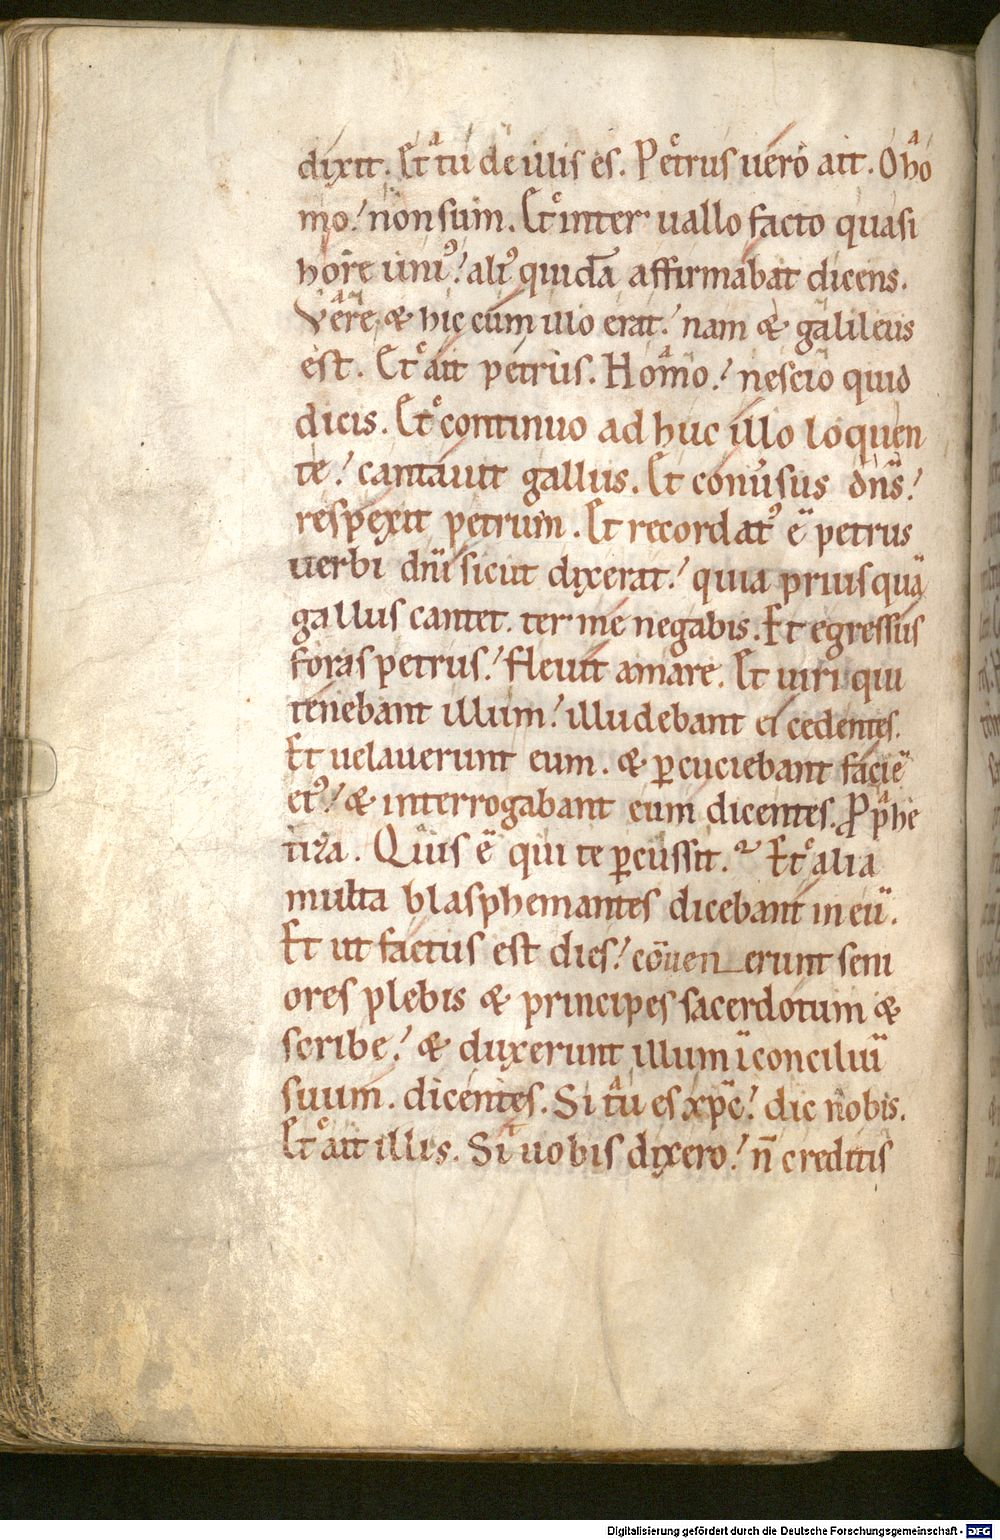 dixit. Et tu de illis es. Petrus uero ait. O ho
mo! non sum. Et inter uallo facto quasi
hore uni⁹! ali⁹ quidā affirmabat dicens.
Vere & hic cum illo erat! nam & galileus
est. Et ait petrus. Homo! nescio quid
dicis. Et continuo ad huc illo loquen
te! cantauit gallus. Et conu̓sus dn̄s!
respexit petrum. Et recordat⁹ ē petrus
uerbi dn̄i sicut dixerat! quia priusquā
gallus cantet. ter me negabis. Et egressus
foras petrus! fleuit amare. Et uiri qui
tenebant illum! illudebant ei cedentes.
Et uelauerunt eum. & ꝑcuciebant faciē
ei⁹! & interrogabant eum dicentes. Prophe
tiza. Quis ē qui te ꝑcussit. Et alia
multa blasphemantes dicebant in eū.
Et ut factus est dies! cōuenerunt seni
ores plebis & principes sacerdotum &
scribe! & duxerunt illum ī conciliū
suum. dicentes. Si tu es xp̄c! dic nobis.
Et ait illis. Si uobis dixero! n̄ creditis
Digitalisierung gefördert durch die Deutsche Forschungsgemeinschaft - DFG